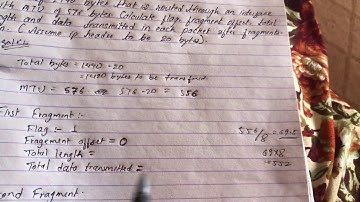 that is routed through an
with MTU of 576 bytes. Calculate flag, fragment offset, total
length and data transmitted in each packet after fragmen-
(Assume ip header to be 20 bytes).
Total bytes = 1490 - 20
= 1470 bytes to be transfer
MTU = 576 576 - 20 = 556
First Fragment:-
Flag :- 1
Fragement offset = 0
Total length =
Total data transmitted =
556/8 = 69.5
69x8
=552
ond Fragment.